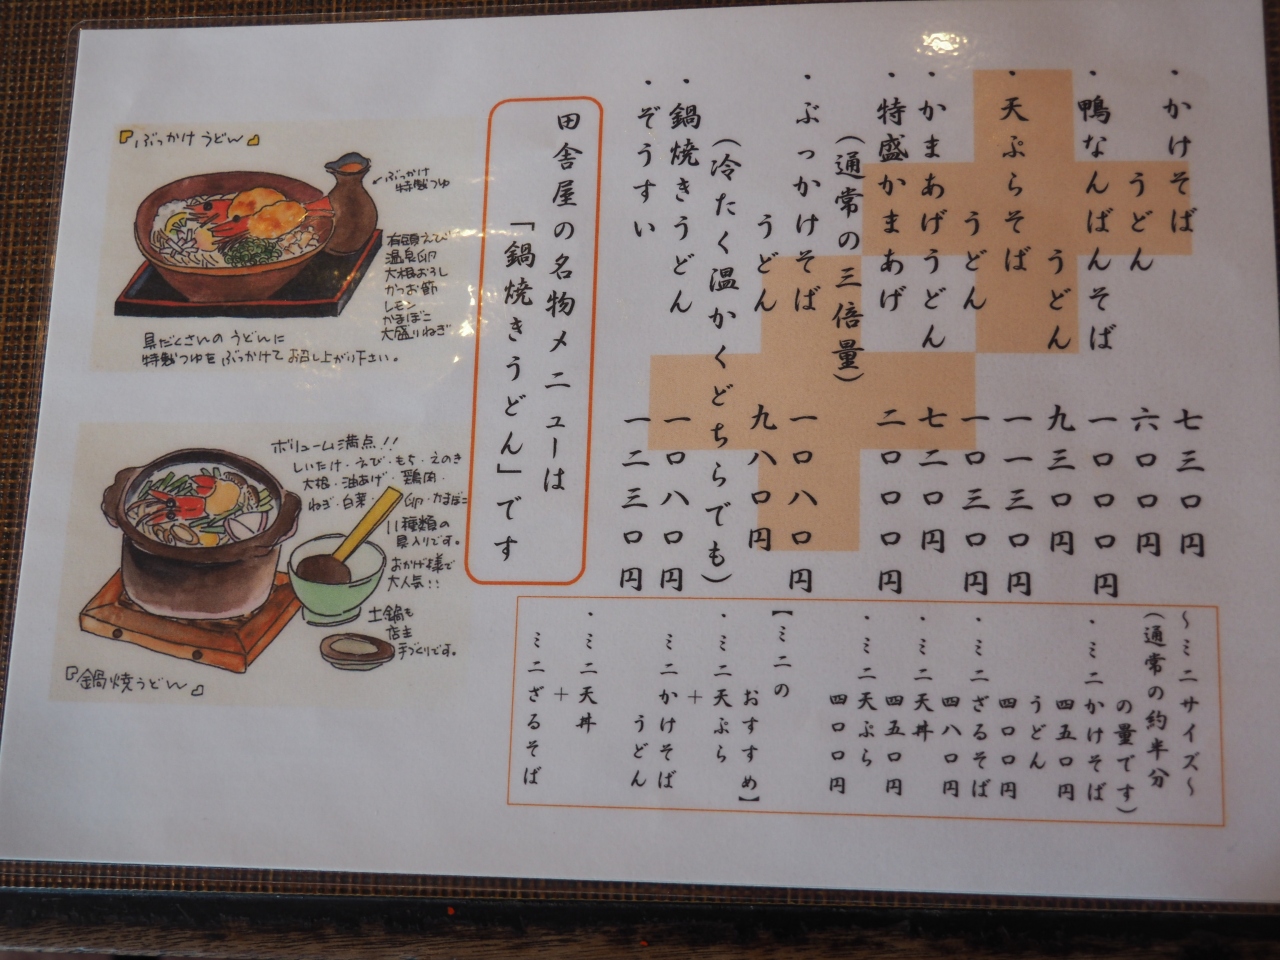 ・かけそば 七三〇円
うどん 六〇〇円
・鴨なんばんそば 一〇〇〇円
うどん 九三〇円
・天ぷらそば 一一三〇円
うどん 一〇三〇円
・かまあげうどん 七二〇円
・特盛かまあげ 二〇〇〇円
(通常の三倍量)
・ぶっかけそば 一〇八〇円
うどん 九八〇円
(冷たく温かくどちらでも)
・鍋焼きうどん 一〇八〇円
・ぞうすい 一二三〇円
田舎屋の名物メニューは
「鍋焼きうどん」です
〜ミニサイズ〜
(通常の約半分
の量です)
・ミニかけそば
四五〇円
うどん
四〇〇円
・ミニざるそば
四八〇円
・ミニ天丼
四五〇円
・ミニ天ぷら
四〇〇円
【ミニの
おすすめ】
・ミニ天ぷら
+
ミニかけそば
うどん
・ミニ天丼
+
ミニざるそば
『ぶっかけうどん』
ぶっかけ
特製つゆ
有頭えび
温泉卵
大根おろし
かつお節
レモン
かまぼこ
大盛りねぎ
具だくさんのうどんに
特製つゆをぶっかけてお召し上がり下さい。
ボリューム満点!!
しいたけ・えび・もち・えのき
大根・油あげ・鶏肉・
ねぎ・白菜・卵・かまぼこ
11種類の
具入りです。
おかげ様で
大人気!!
土鍋も
店主
手づくりです。
『鍋焼うどん』